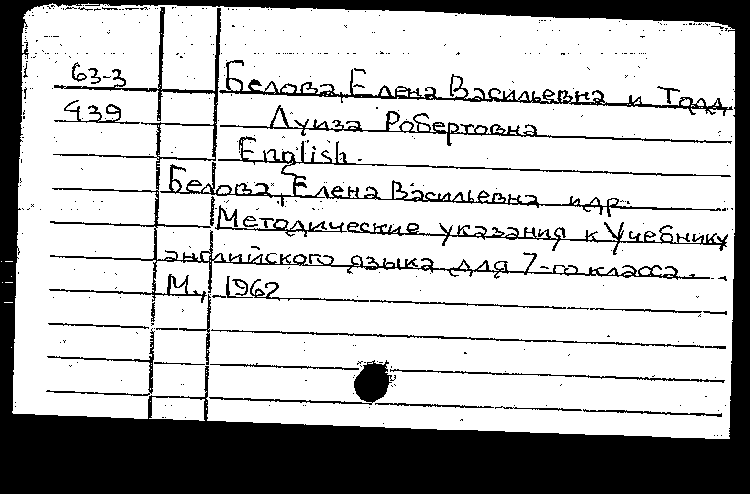 63-3 Белова, Елена Васильевна и Тодд,
439 Луиза Робертовна
English.
Белова, Елена Васильевна и др.
Методические указания к Учебнику
английского языка для 7-го класса.
М., 1962